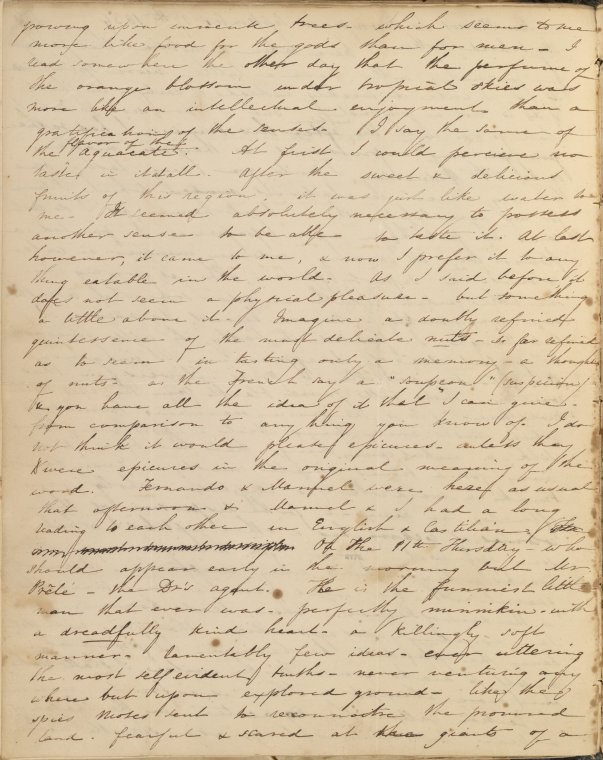 growing upon immense trees - which seems to me
more like food for the gods than for men - I
read somewhere the other day that the perfume of
the orange blossom under tropical skies was
more like an intellectual enjoyment than a
gratification of the senses - I say the same of
the flavor of the aguacate. At first I could percieve no
taste in it at all. After the sweet & delicious
fruits of this region it was just like water to
me - It seemed absolutely necessary to possess
another sense to be able to taste it. At last
however, it came to me, & now I prefer it to any
thing eatable in the world. As I said before it
does not seem a physical pleasure - but something
a little above it. Imagine a doubly refined
quintessence of the most delicate nuts - so far refined
as to seem in tasting only a memory - a thought
of nuts - as the French say a "soupcon" (suspicion) -
& you have all the idea of it that I can give -
from comparison to any thing you know of. I do
not think it would please epicures - unless they
were epicures in the original meaning of the
word. Fernando & Manuel were here as usual
that afternoon & Manuel & I had a long
reading to each other in English & Castilian.
On the 11th Thursday - who
should appear early in the morning but Mr
Prêle - the Dr's agent. He is the funniest little
man that ever was - perfectly minnikin - with
a dreadfully kind heart - a killingly soft
manner - lamentably few ideas - ever uttering
the most self evident truths - never venturing any
where but upon explored ground - like the
spies Moses sent to reconnoitre the promised
land. fearful & scared at the giants of a